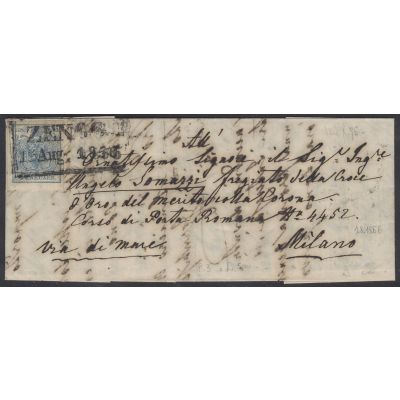 ZENGG
1 Aug. 1856
All'
Ornatissimo Signore, il Sigr. Ingre.
Angelo Somazzi fregiato della Croce
d'Oro del merito colla Corona.
Corso di Porta Romana No 4452.
via di mare Milano